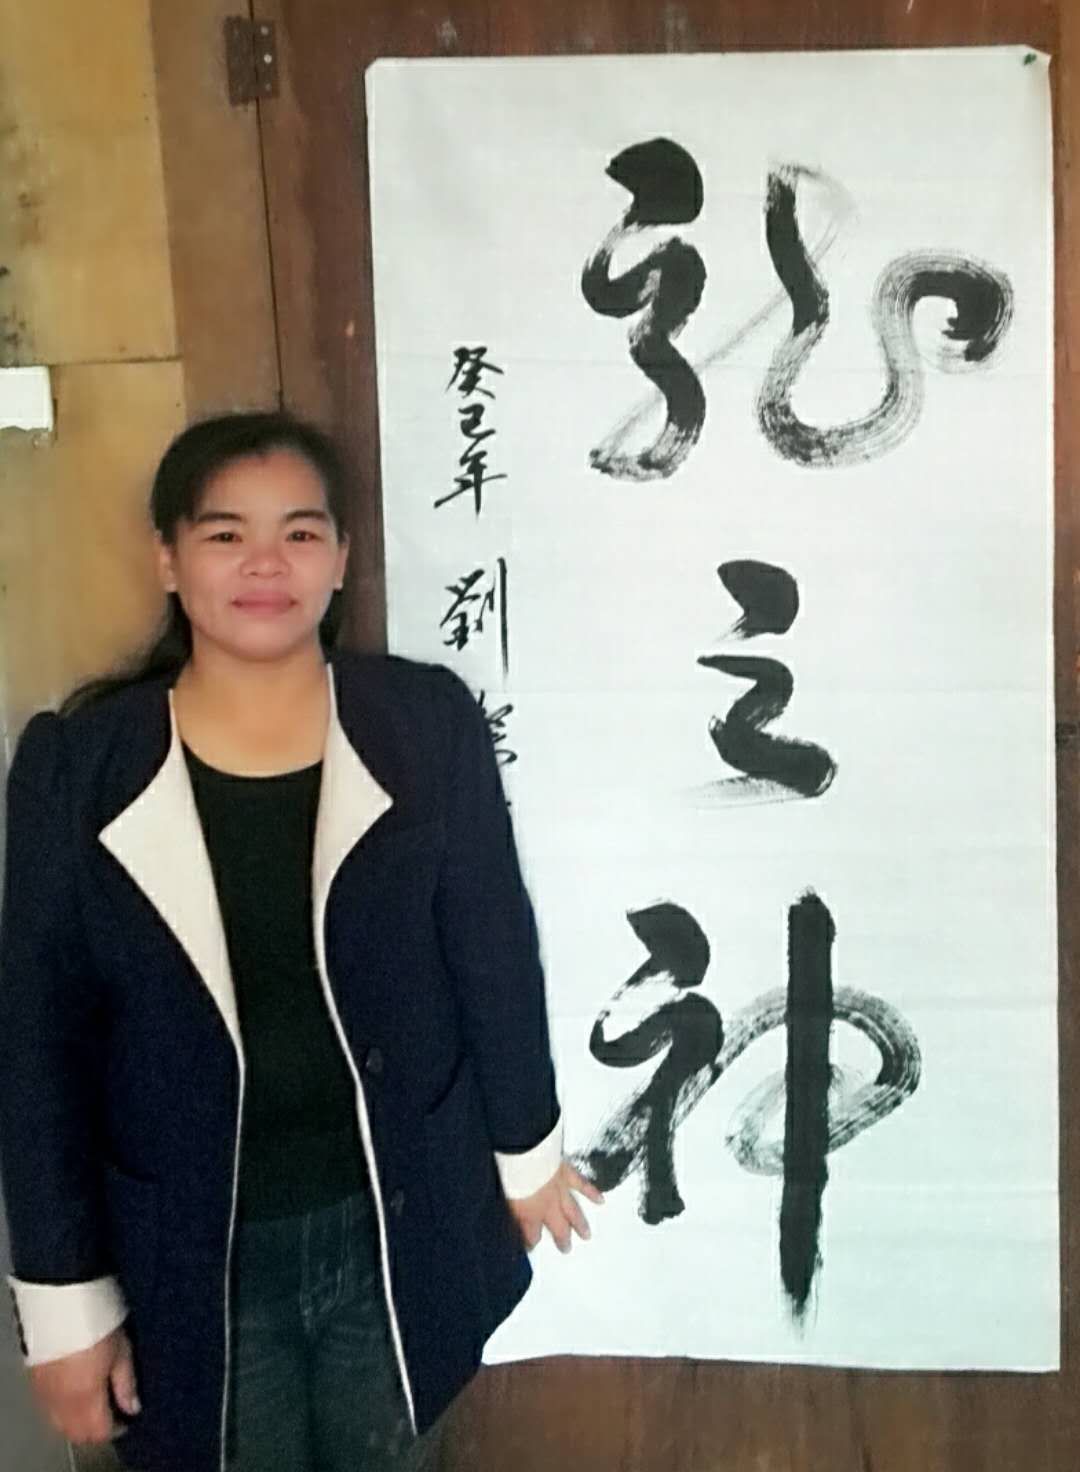 龍之神
癸巳年 劉